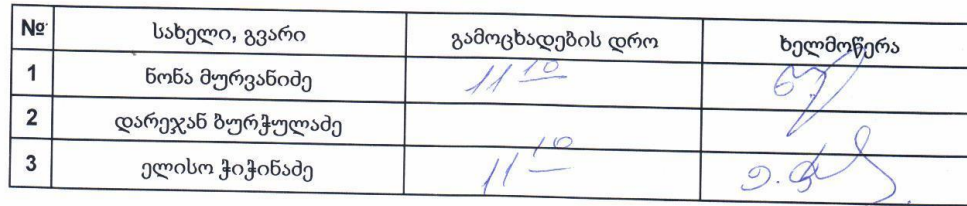 № სახელი, გვარი გამოცხადების დრო ხელმოწერა
1 ნონა მურვანიძე 11 10
2 დარეჯან ბურჭულაძე
3 ელისო ჭიჭინაძე 11 10